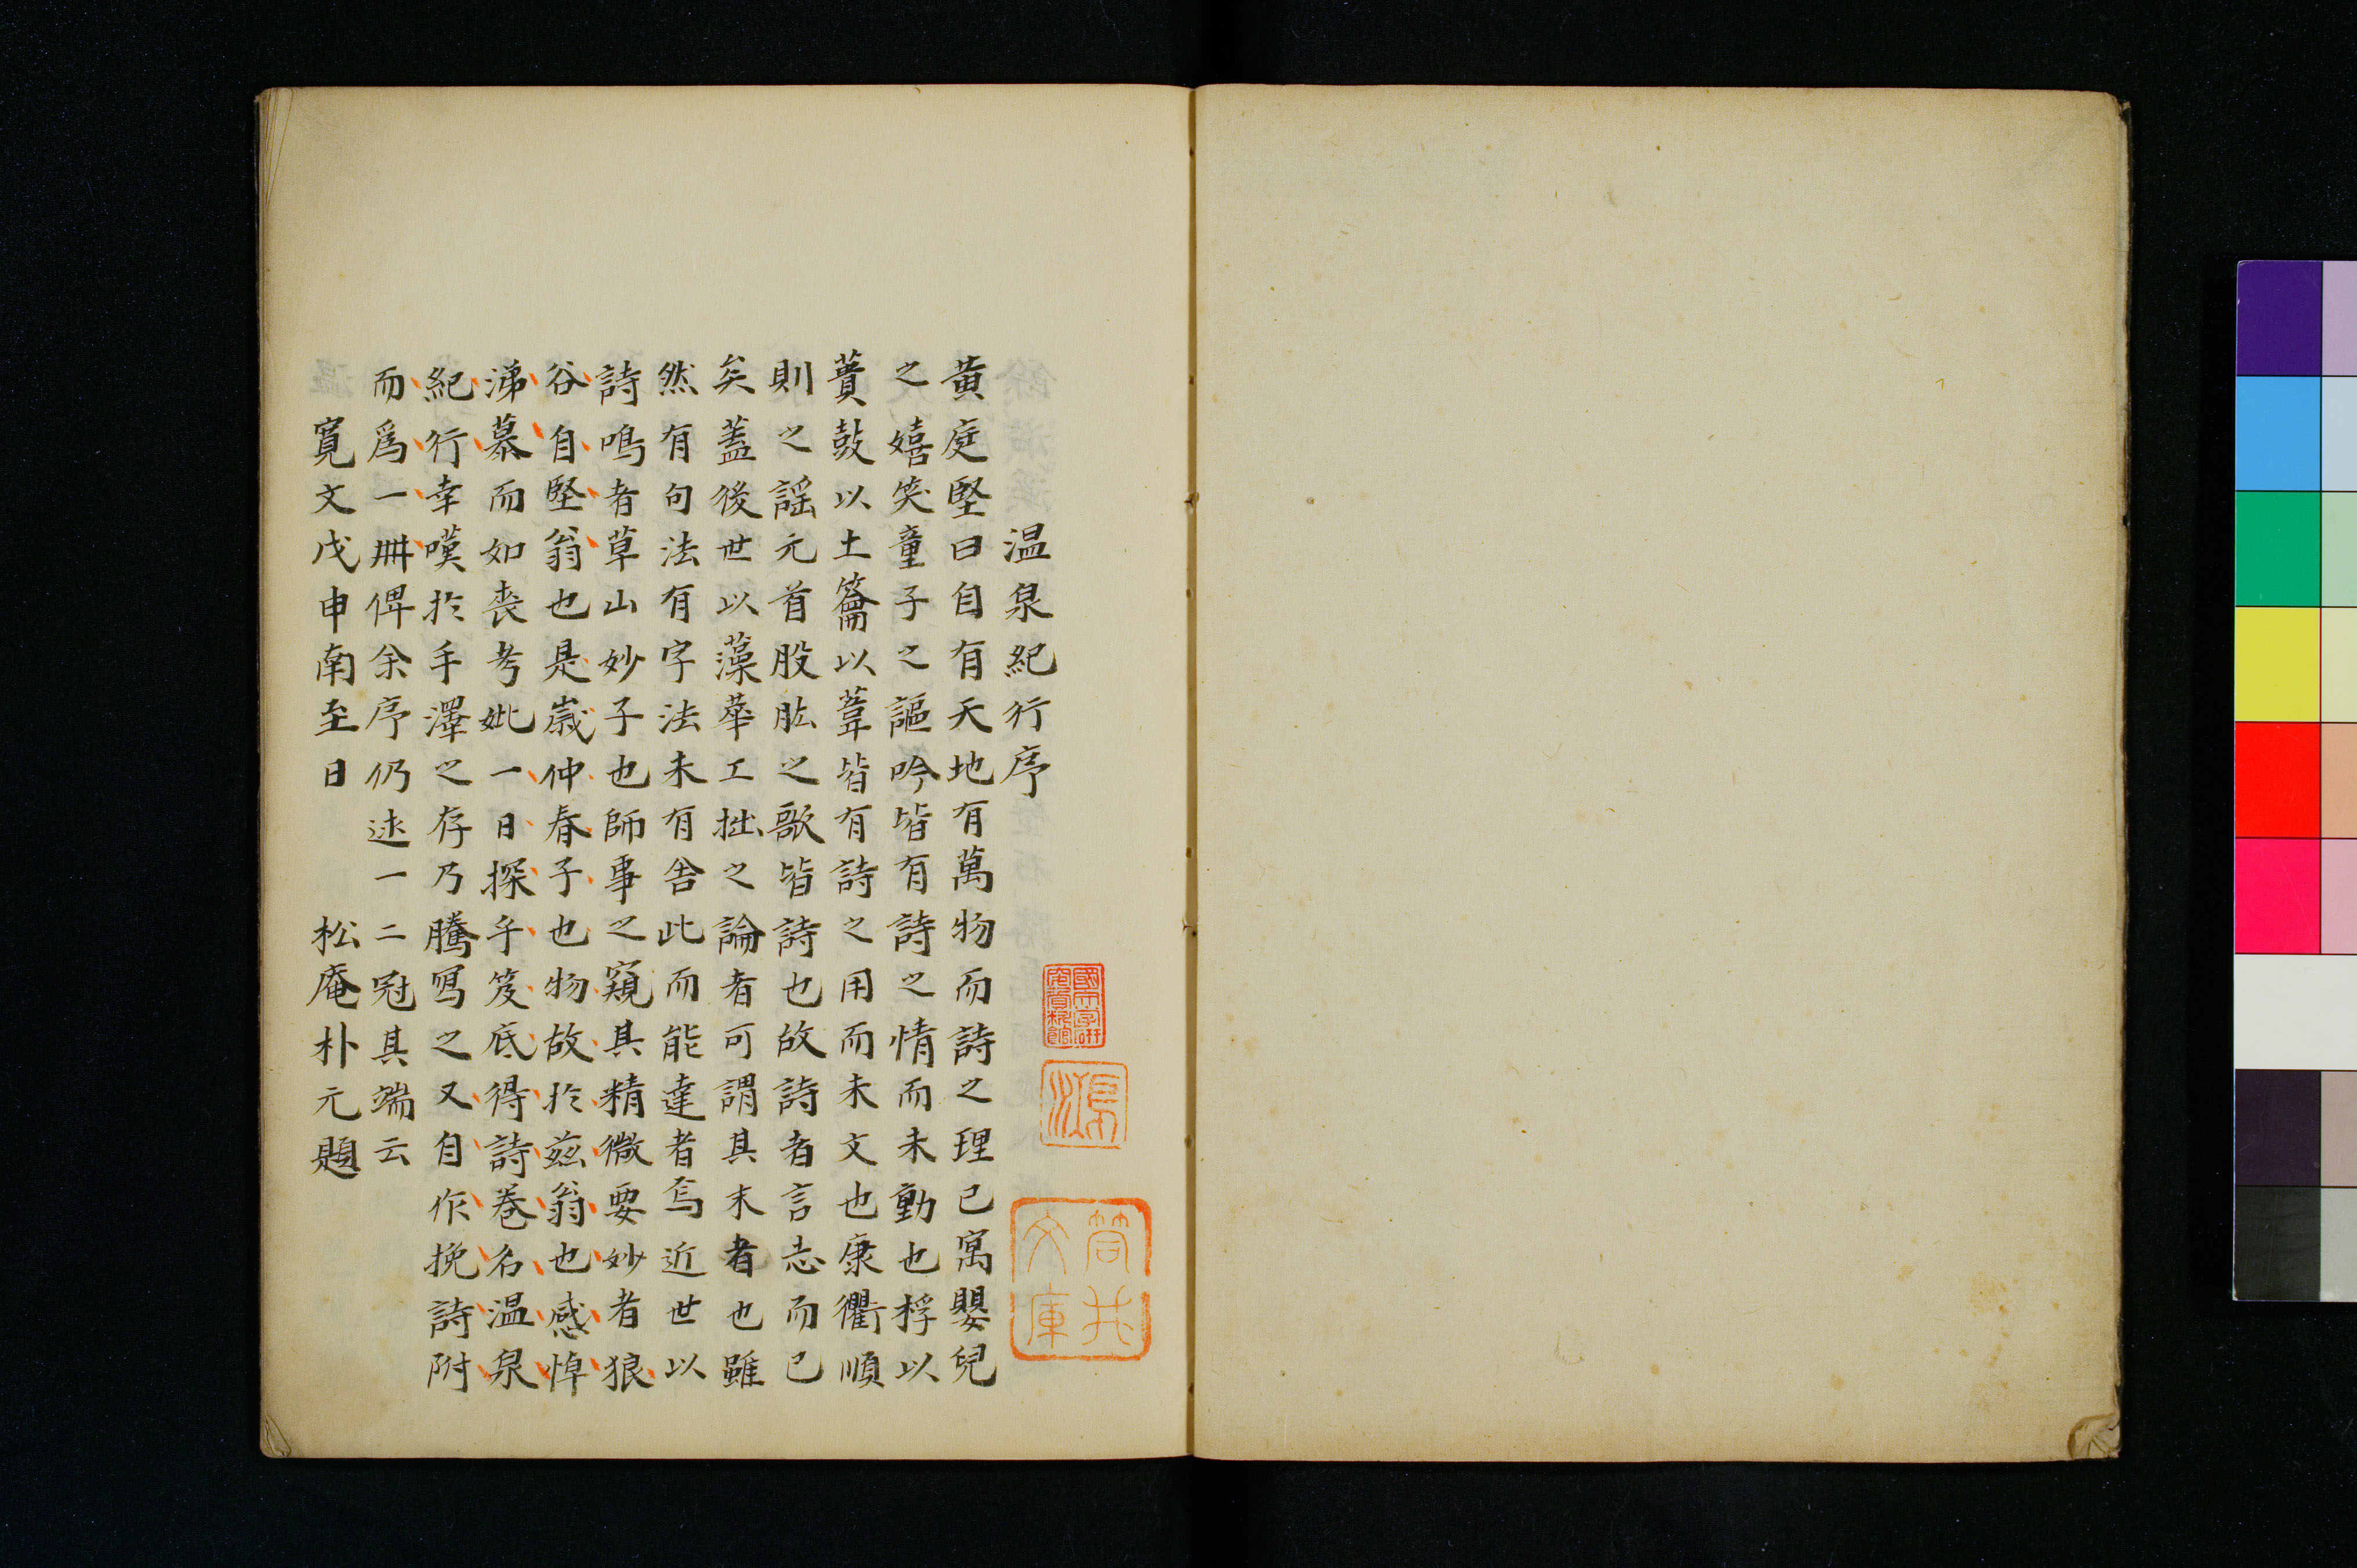 温泉紀行序
黄庭堅曰自有天地有萬物而詩之理已寓嬰兒
之嬉笑童子之謳吟皆有詩之情而未動也桴以
蕢鼓以土籥以葦皆有詩之用而未文也康衢順
則之謡元首股肱之歌皆詩也故詩者言志而已
矣蓋後世以藻華工拙之論者可謂其末者也雖
然有句法有字法未有舎此而能達者焉近世以
詩鳴者草山妙子也師事之窺其精微要妙者狼
谷自堅翁也是歳仲春子也物故於茲翁也感悼
涕慕而如喪考妣一日探乎笈底得詩巻名温泉
紀行幸嘆於手澤之存乃騰寫之又自作挽詩附
而爲一冊俾余序仍述一二冠其端云
寛文戊申南至日 松庵朴元題
國文学研究資料館
筒井文庫